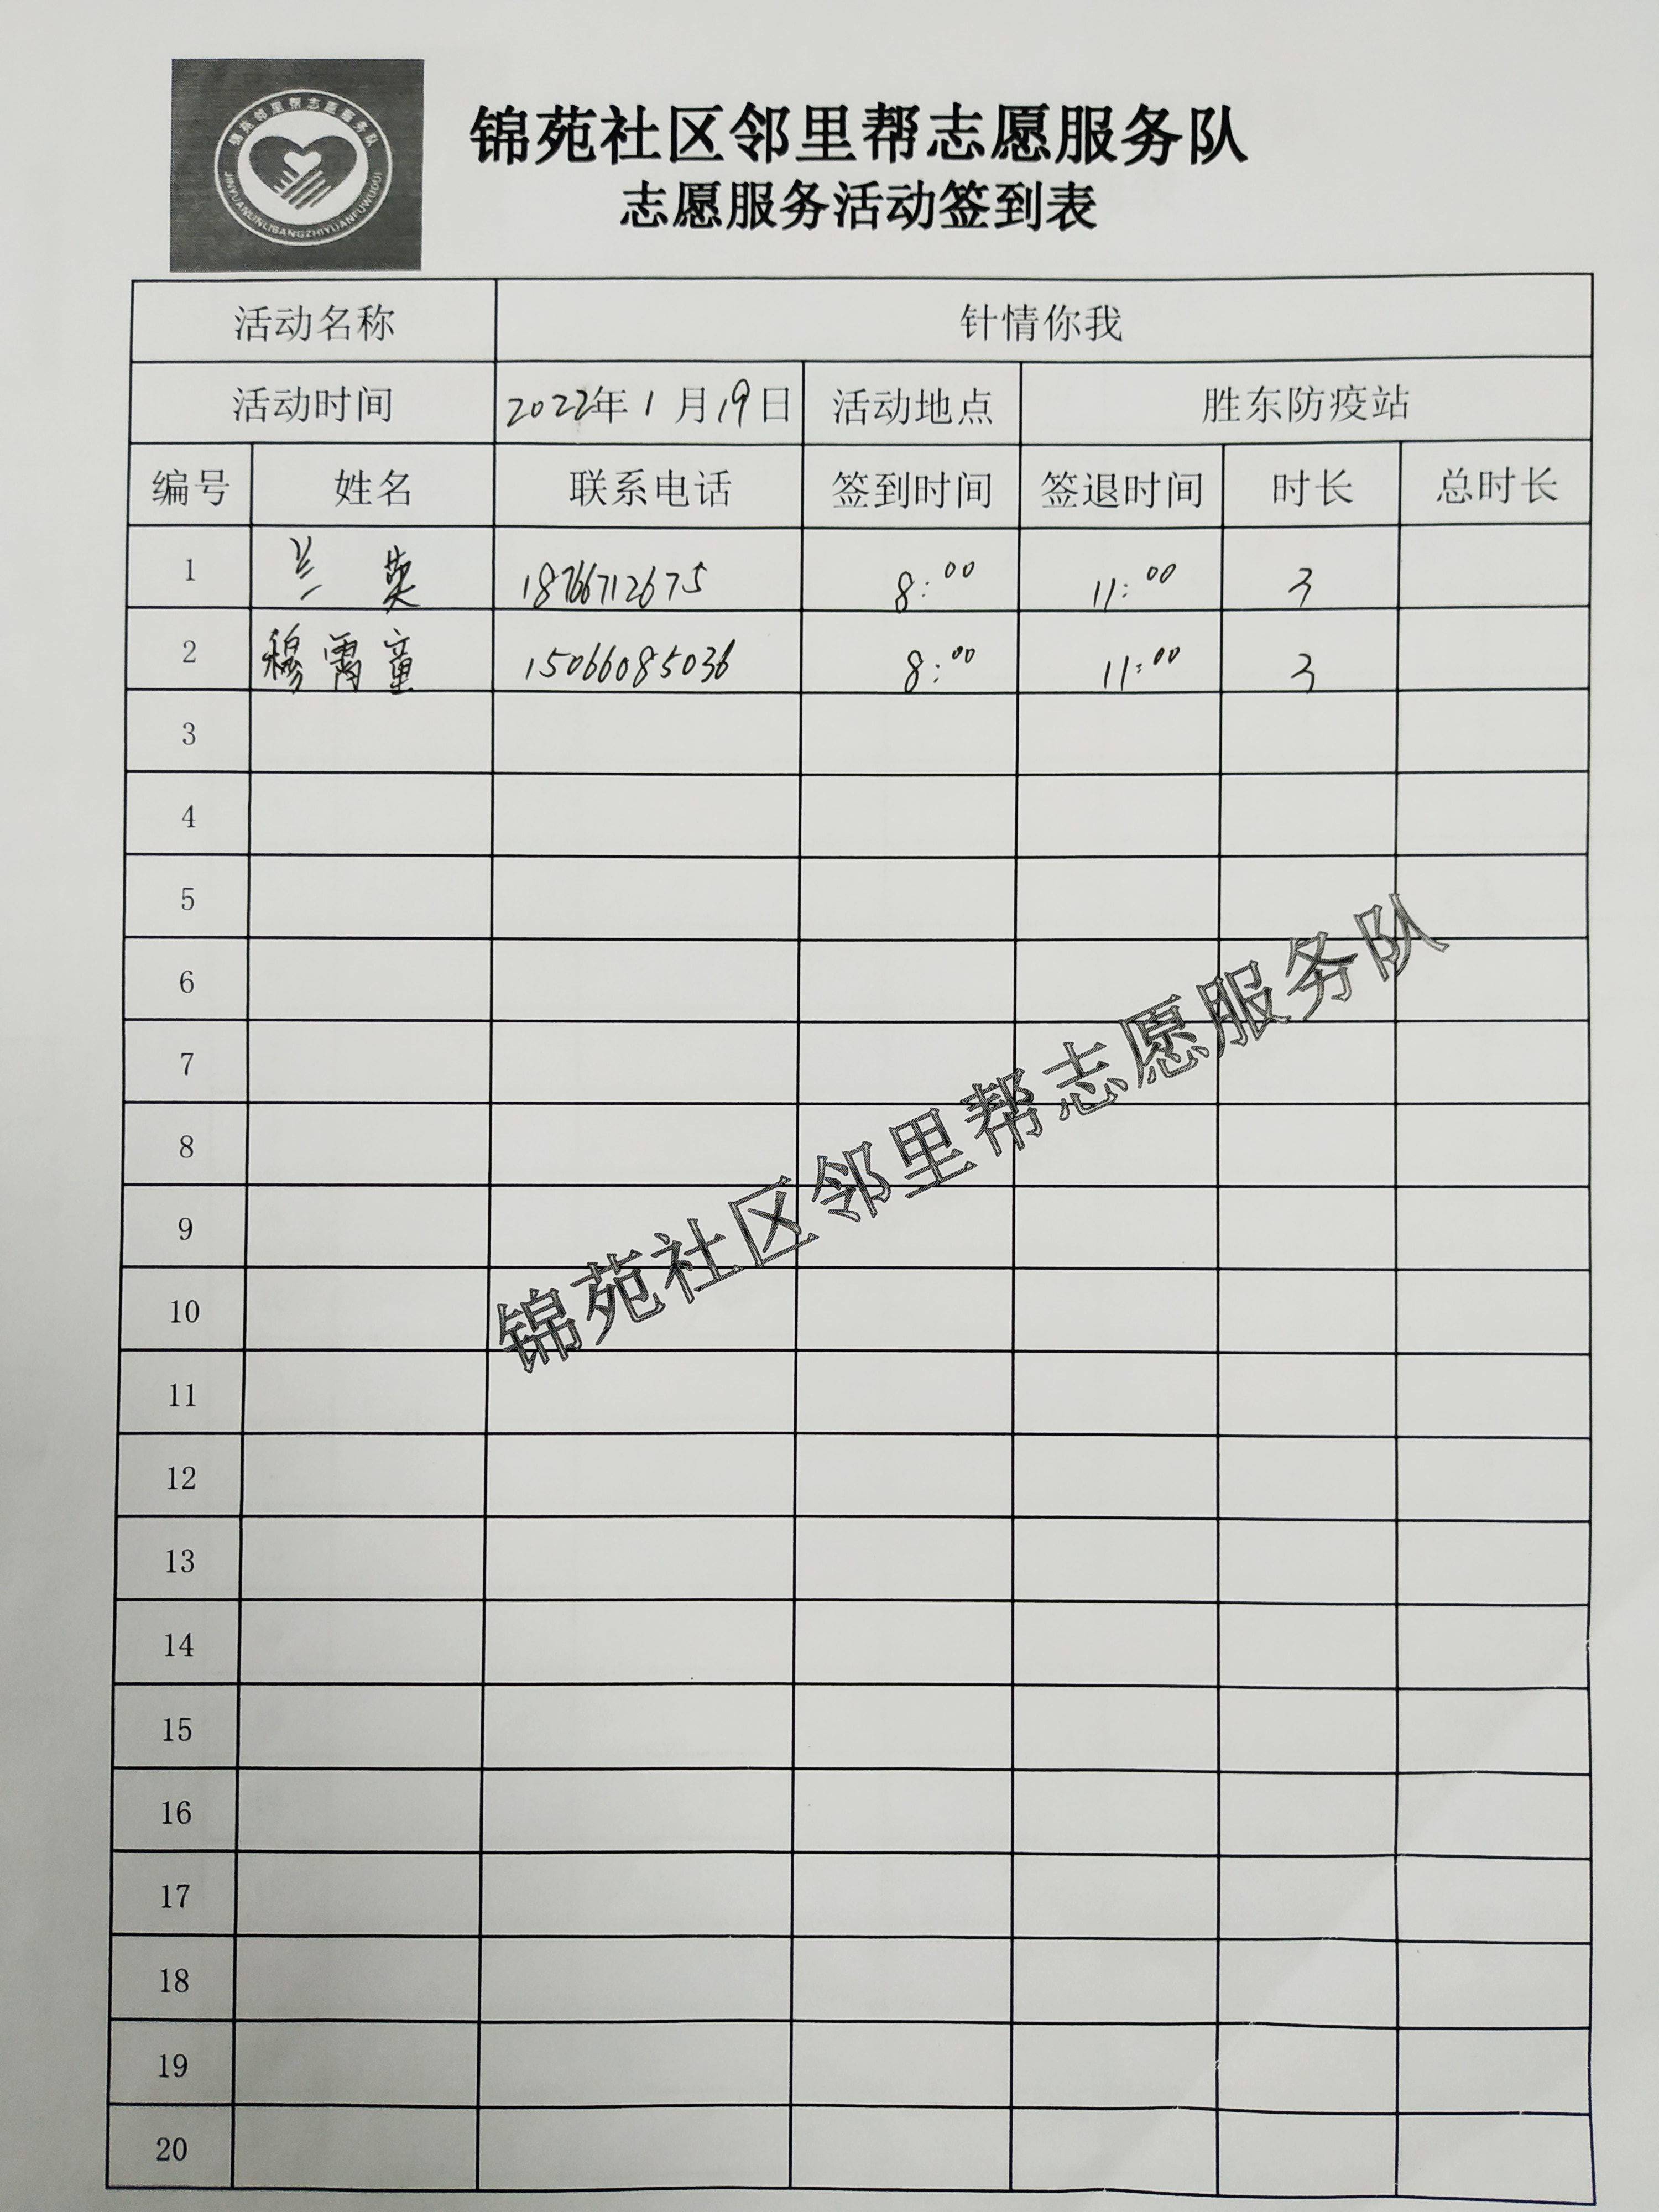 锦苑邻里帮志愿服务队
JINYUANLINLIBANGZHIYUANFUWUDUI
锦苑社区邻里帮志愿服务队
志愿服务活动签到表
活动名称 针情你我
活动时间 2022年1月19日 活动地点 胜东防疫站
编号 姓名 联系电话 签到时间 签退时间 时长 总时长
1 兰英 18766712675 8:00 11:00 3
2 穆霄童 15066085036 8:00 11:00 3
3
4
5
6
7
8
9
10
11
12
13
14
15
16
17
18
19
20
锦苑社区邻里帮志愿服务队